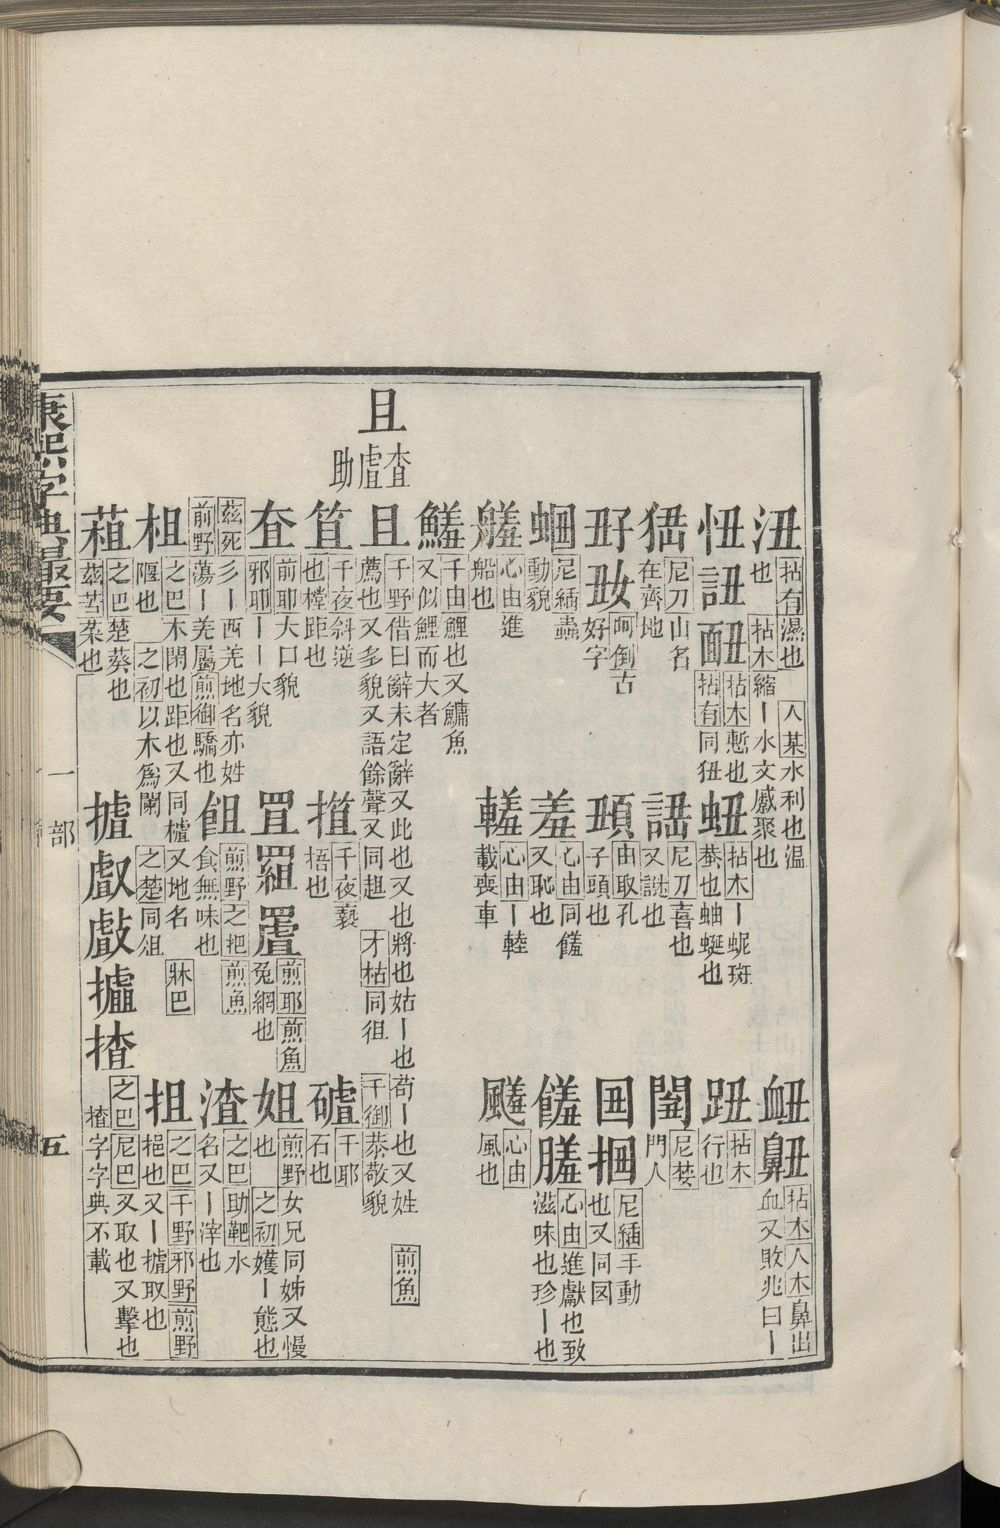 沑 拈有濕也 人某水利也溫也 拈木縮丨水文蹙聚也
衄 鼻丑 拈木人木鼻出血又敗兆曰丨
忸 䛏 䩄 拈木慙也 拈有同狃
䖡 拈木丨蚭斑蝥也蚰蜒也
䟕 拈木行也
㺀 尼刀山名在齊地
尼刀喜也又謎也
尼婪門人
丑子 㚼 呵倒古好字
由取孔子頭也
囬 掴 尼緬手動也又同囡
蟈 尼緬蟲動貌
羞 心由同饈又恥也
饈 膳 心由進獻也致滋味也珍丨也
心由進船也
心由丨輇載喪車
心由風也
千由鯉也又鱅魚又似鯉而大者
且 査虘助
且 千野借曰辭未定辭又此也又也將也姑丨也苟丨也又姓 煎魚薦也又多貌又語餘聲又同趄 才枯同徂 千御恭敬貌
笡 千夜斜逆也樘距也
千夜褻梧也
千耶石也
査 前耶大口貌 邪耶丨丨大貌
罝 䍉 煎耶煎魚兔網也
姐 煎野女兄同姊又慢也 之初㜅丨態也
茲死彡丨西羌地名亦姓 前野蕩丨羌屬 煎御驕也
飷 煎野之把煎魚食無味也
渣 之巴助靶水名又丨滓也
柤 之巴木閑也距也又同樝又地名 牀巴隁也 之初以木爲闌 之楚同俎
抯 之巴千野邪野煎野挹也又丨摣取也
蒩 之巴楚葵也 茲苦菜也
摣 㪥 戲 攎 揸 之巴尼巴㕚取也又擊也 樝字字典不載
康熙字典撮要
一部
五